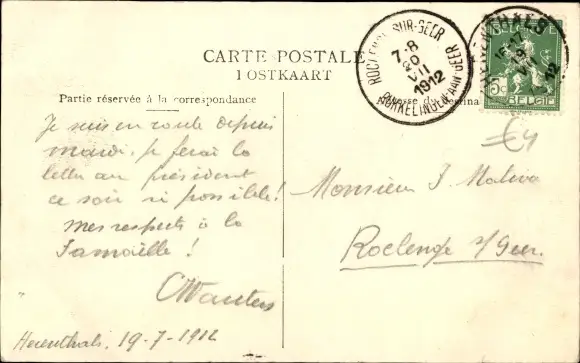 CARTE POSTALE
POSTKAART
Partie réservée à la correspondance
Adresse du
ROCLENGE-SUR-GEER
7-8
20
VII
1912
RUKKELINGEN-AAN-GEER
HERENTHALS
16-17
19
VII
12
5c
BELGIE
Je suis en route depuis
mardi, je ferai la
lettre au président
ce soir si possible!
mes respects à la
Famaëlle!
CWauters
Herenthals, 19-7-1912
Monsieur J
Roclenge s/Geer.
£4